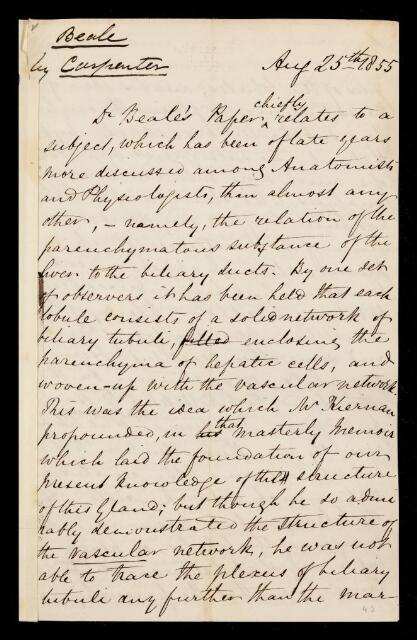 Beale
by Carpenter
Aug 25th 1855
Dr Beale's Paper chiefly relates to a
subject, which has been of late years
more discussed among Anatomists
and Physiologists, than almost any
other, – namely, the relation of the
parenchymatous substance of the
liver to the biliary ducts. By one set
of observers it has been held that each
lobule consists of a solid network of
biliary tubuli, filled enclosing the
parenchyma of hepatic cells, and
woven-up with the vascular network.
This was the idea which Mr Kiernan
propounded, in his that masterly Memoir
which laid the foundation of our
present knowledge of the structure
of this Gland; but though he so admi
rably demonstrated the structure of
the vascular network, he was not
able to trace the plexus of biliary
tubuli any further than the mar-